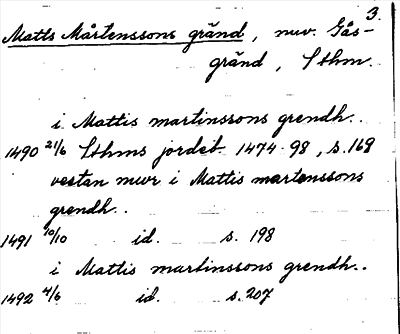 3.
Matts Mårtenssons gränd, nuv. Gås-
gränd, Sthm.
i Mattis martinssons grendh..
1490 21/6 Sthms jordeb. 1474-98, s. 169
vestan mwr i Mattis martenssons
grendh..
1491 10/10 id. s. 198
i Mattis martinssons grendh..
1492 4/6 id. s. 207